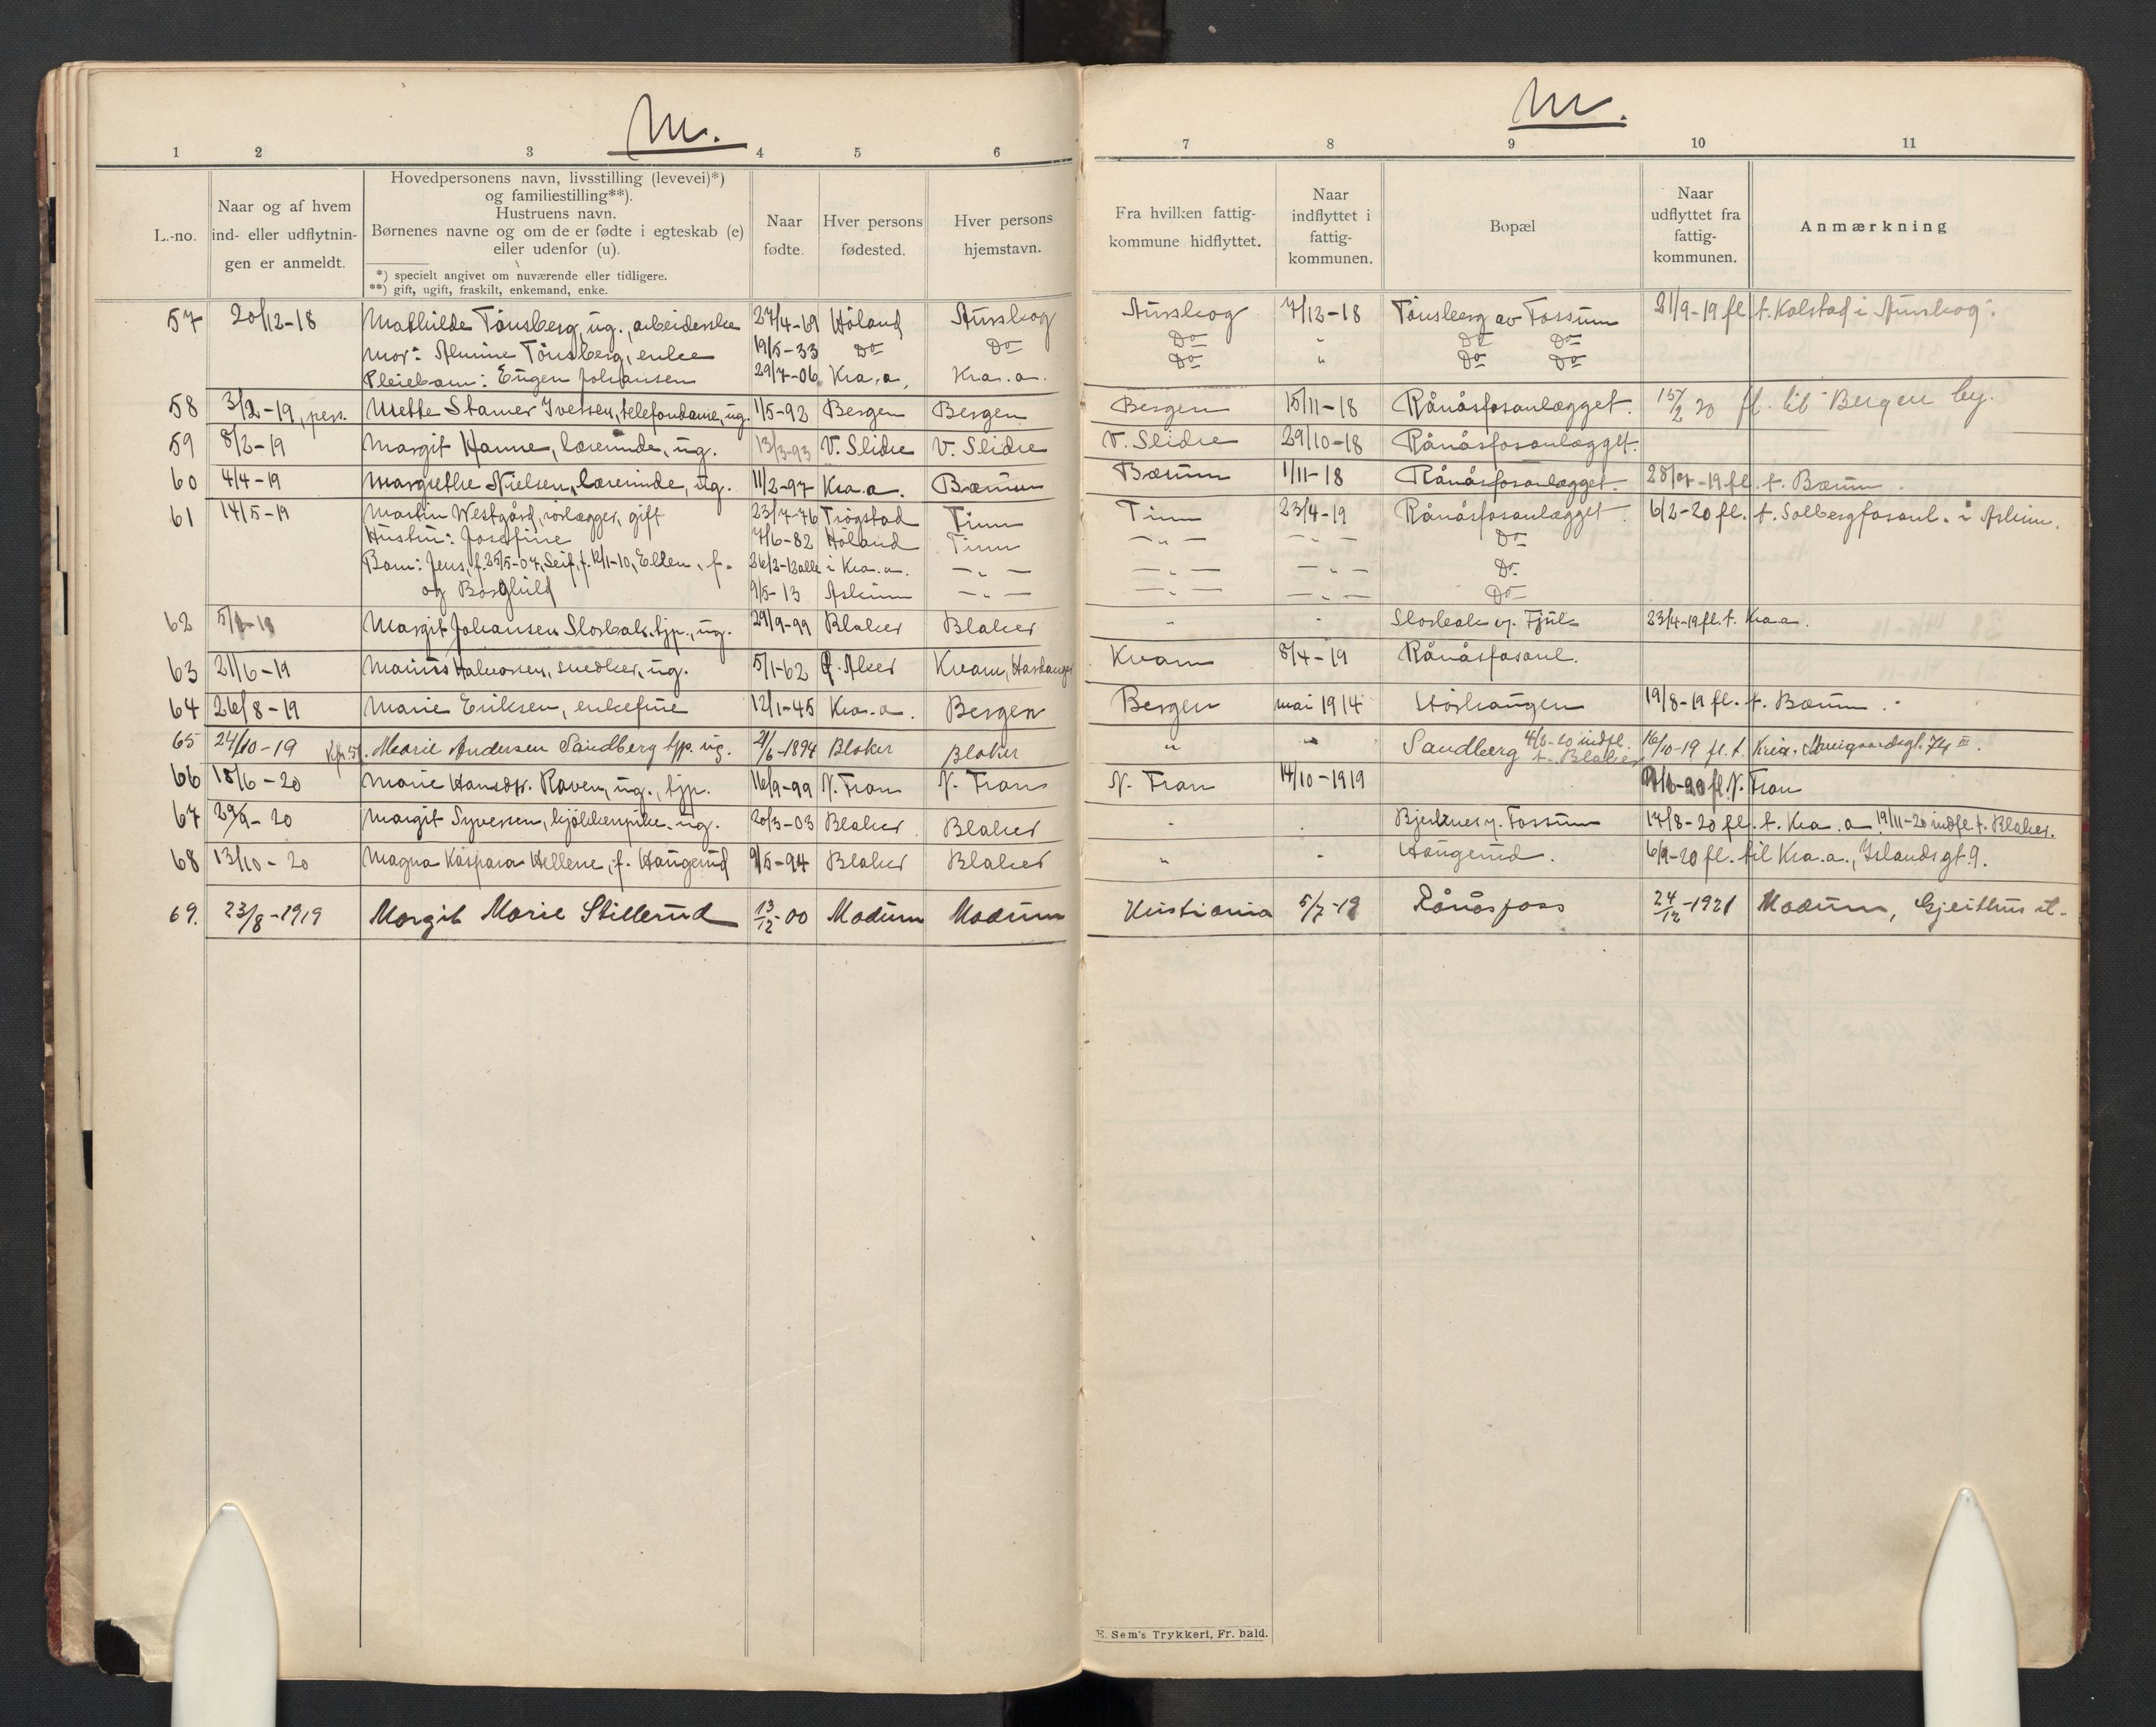 M.
M.
1 2 3 4 5 6
7 8 9 10 11
L.-no.
Naar og af hvem
ind- eller udflytnin-
gen er anmeldt.
Hovedpersonens navn, livsstilling (levevei)*)
og familiestilling**).
Hustruens navn.
Børnenes navne og om de er fødte i egteskab (e)
eller udenfor (u).
*) specielt angivet om nuværende eller tidligere.
**) gift, ugift, fraskilt, enkemand, enke.
Naar
fødte.
Hver persons
fødested.
Hver persons
hjemstavn.
Fra hvilken fattig-
kommune hidflyttet.
Naar
indflyttet i
fattig-
kommunen.
Bopæl
Naar
udflyttet fra
fattig-
kommunen.
Anmærkning
57 20/12-18 Mathilde Tønsberg, ug., arbeiderske 27/4-69 Høland Aurskog Aurskog 7/12-18 Tønsberg av Fossum 21/9-19 fl. t. Kolstad i Aurskog.
Mor: Almine Tønsberg, enke 19/5-33 Do Do Do " Do Do
Pleiebarn: Eugen Johansen 29/7-06 Kra.a. Kra.a. Do " Do Do
58 3/2-19, pers. Mette Stamer Iversen, telefondame, ug. 1/5-92 Bergen Bergen Bergen 15/11-18 Rånåsfosanlægget. 15/2 20 fl. til Bergen by.
59 8/2-19 Margit Hanne, lærerinde, ug. 13/3-93 V. Slidre V. Slidre V. Slidre 29/10-18 Rånåsfosanlægget.
60 4/4-19 Margrethe Nielsen, lærerinde, ug. 11/2-97 Kra.a. Bærum Bærum 1/11-18 Rånåsfosanlægget. -19 fl. t. Bærum.
61 14/5-19 Martin Westgård, rørlægger, gift 23/7-76 Trøgstad Tinn Tinn 23/4-19 Rånåsfosanlægget. 6/2-20 fl. t. Solbergfosanl. i Askim.
Hustru: Josefine 7/6-82 Høland Tinn — " — — " — Do
Barn: Jens, f. 25/5-07, Leif, f. 12/1-10, Ellen, f. 26/2-12 alle i Kra.a. — " — — " — — " — Do
og Borghild 9/5-13 Askim — " — — " — — " — Do
62 Margit Johansen Slorbak, tjp., ug. 29/9-99 Blaker Blaker " " Slorbak v. Fjuk 23/4-19 fl. t. Kra.a.
63 21/6-19 Marius Halvorsen, snedker, ug. 5/1-62 Ø. Aker Kvam, Hardanger Kvam 8/4-19 Rånåsfosanl.
64 26/8-19 Marie Eriksen, enkefrue 12/1-45 Kra.a. Bergen Bergen mai 1914 Hørhaugen 19/8-19 fl. t. Bærum.
65 24/10-19 Marie Andersen Sandberg tjp. ug. 2/6-1894 Blaker Blaker " " Sandberg 4/6-20 indfl. t. Blaker 16/10-19 fl. t. Kria. 74 III.
66 18/6-20 Marie Hansdtr. Raven, ug., tjp. 16/9-99 N. Fron N. Fron N. Fron 14/10-1919 fl. N. Fron
67 29/9-20 Margit Syversen, kjøkkenpike, ug. 20/3-03 Blaker Blaker " " Bjerknes v. Fossum 17/8-20 fl. t. Kra.a. 19/11-20 indfl. t. Blaker.
68 13/10-20 Magna Kaspara Hellene, f. Haugerud 9/5-94 Blaker Blaker " " Haugerud. 6/9-20 fl. til Kra.a., Islandsgt. 9.
69. 23/8-1919 Margit Marie Stillerud 13/12-00 Modum Modum Kristiania 5/7-19 Rånåsfoss 24/12-1921 Modum, Gjeithus st.
E. Sem's Trykkeri, Fr. hald.